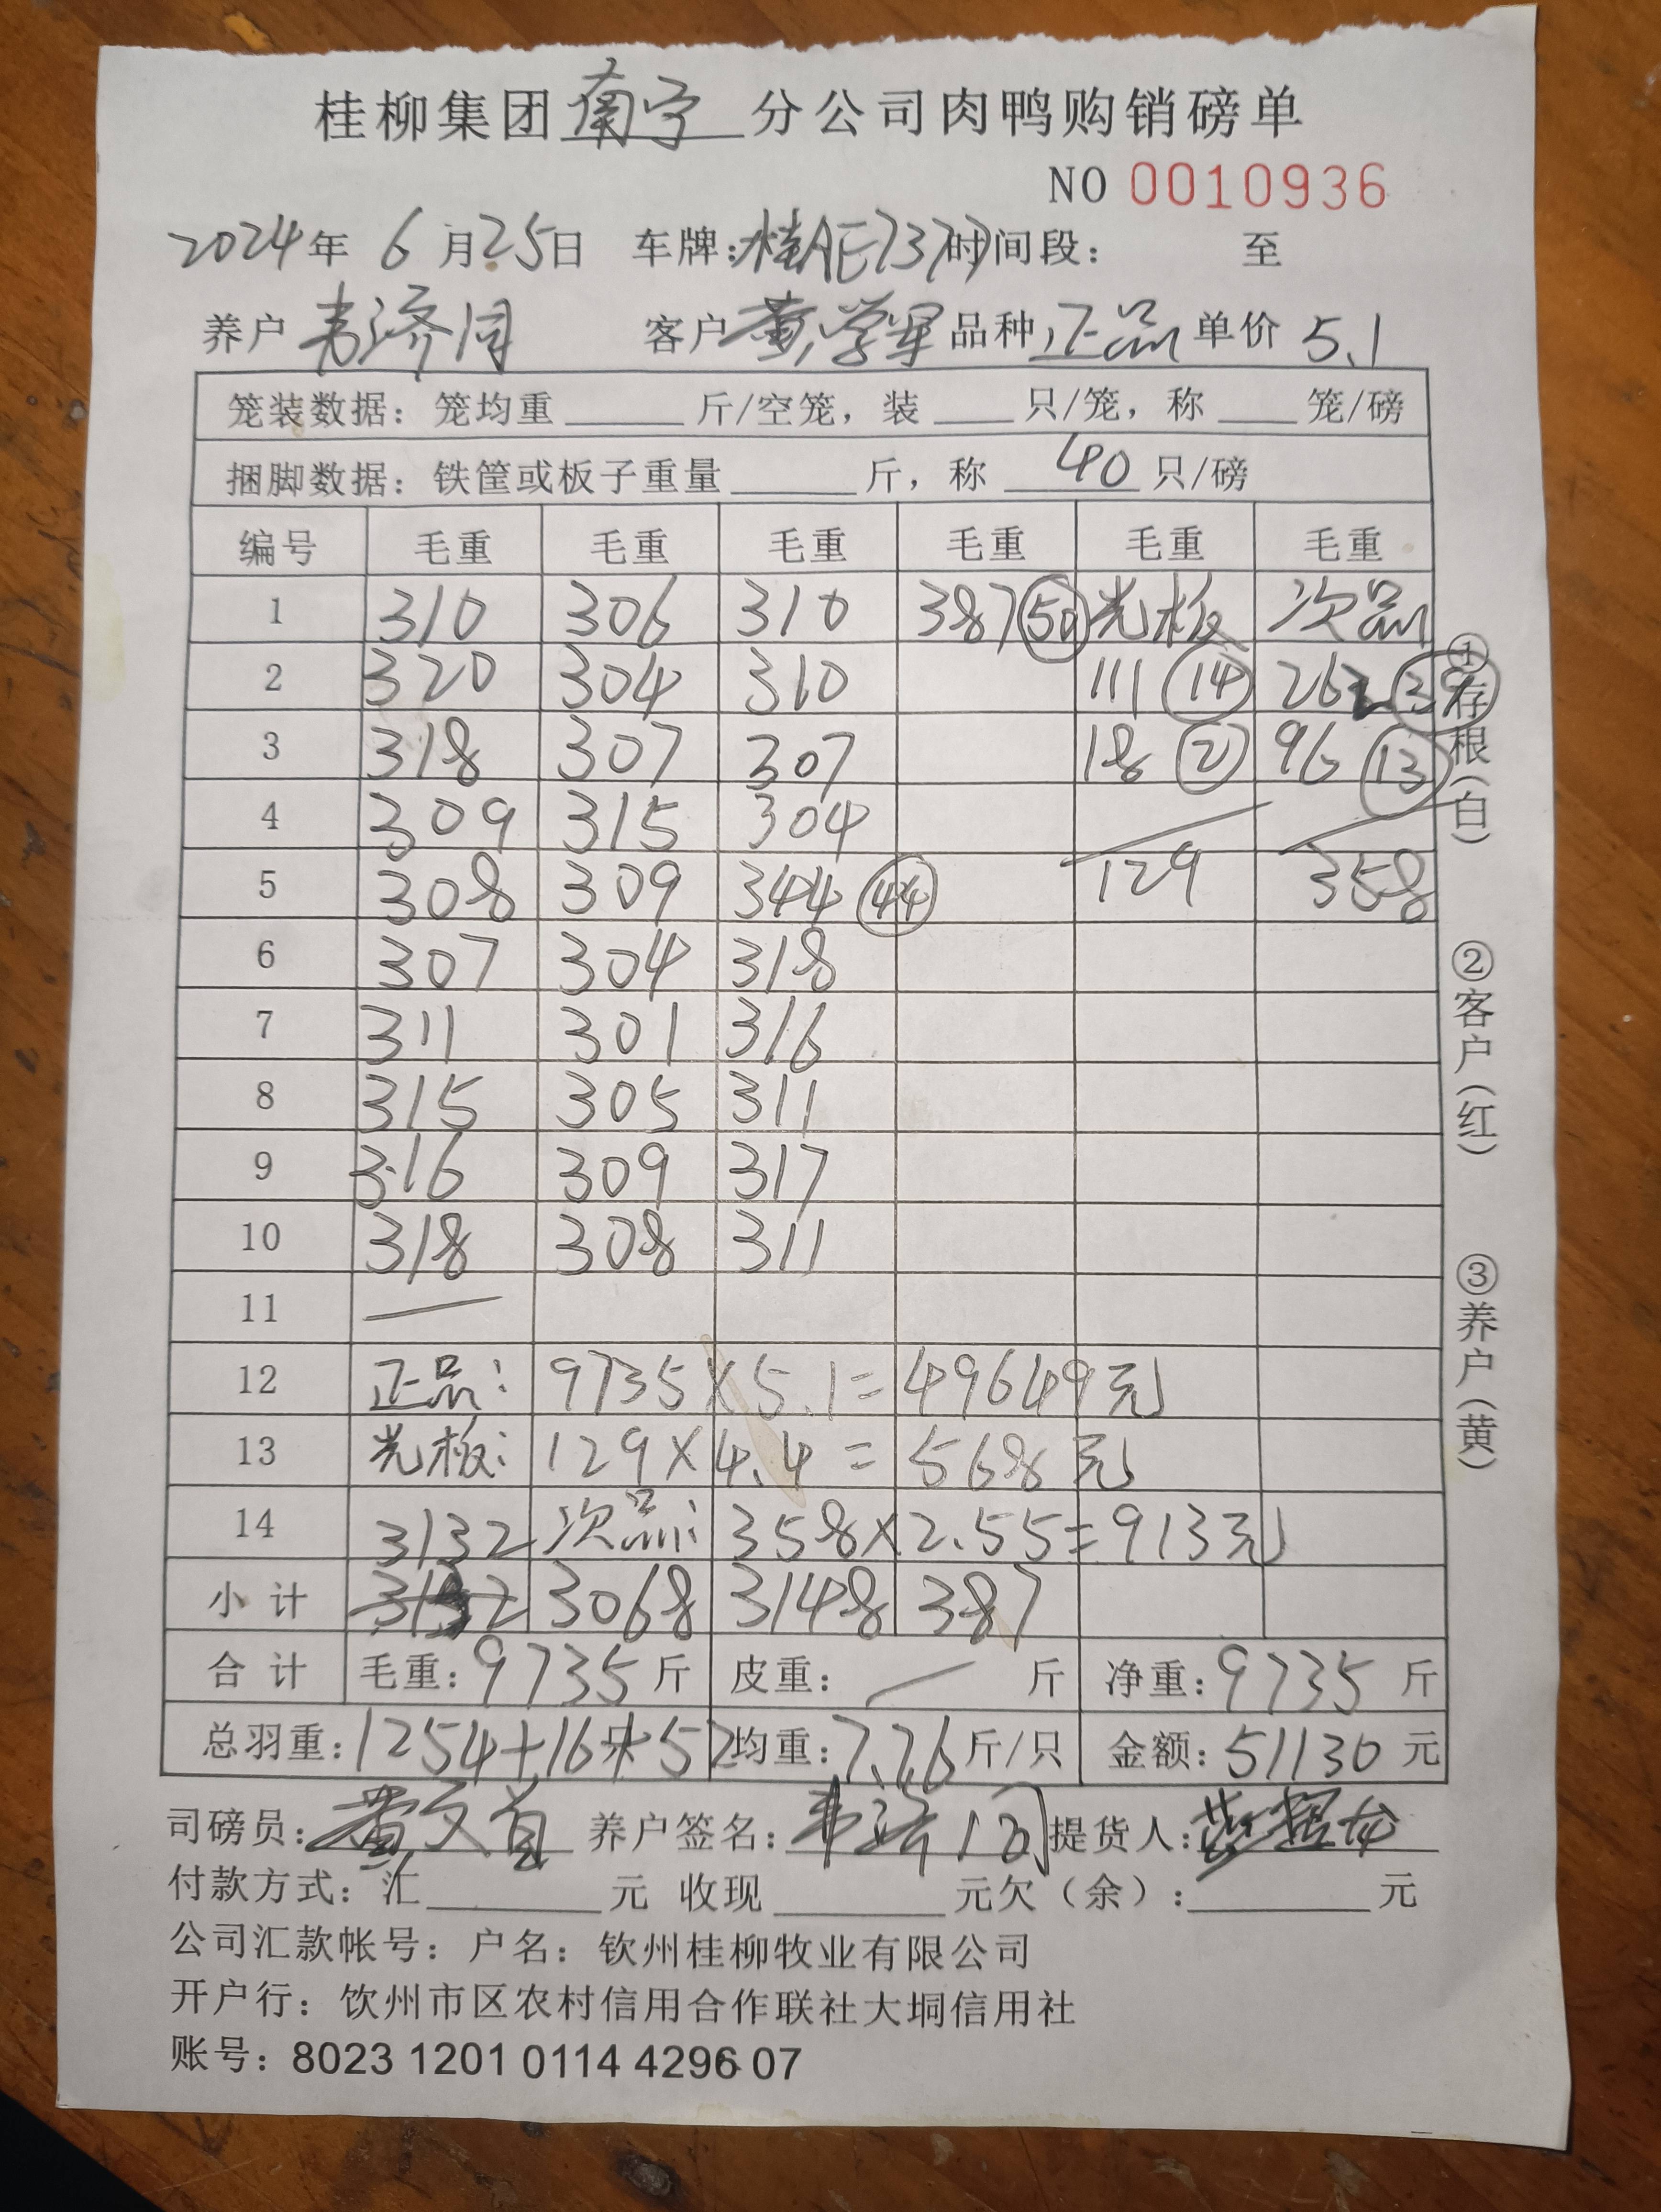 桂柳集团南宁分公司肉鸭购销磅单
NO 0010936
2024年 6月25日 车牌:桂AE7377 时间段: 至
养户 韦济同 客户 黄学军 品种 正品 单价 5.1
笼装数据: 笼均重 斤/空笼, 装 只/笼, 称 笼/磅
捆脚数据: 铁筐或板子重量 斤, 称 40 只/磅
编号 毛重 毛重 毛重 毛重 毛重 毛重
1 310 306 310 387 50 光板 次品
2 320 304 310 111 14 262 39
3 318 307 307 18 2 96 13
4 309 315 304
5 308 309 344 44 129 358
6 307 304 318
7 311 301 316
8 315 305 311
9 316 309 317
10 318 308 311
11 —
12 正品: 9735×5.1=49649元
13 光板: 129×4.4=568元
14 3132 次品: 358×2.55=913元
小计 3132 3068 3148 387
合计 毛重: 9735 斤 皮重: — 斤 净重: 9735 斤
总羽重: 1254+16+52 均重: 7.76 斤/只 金额: 51130 元
司磅员: 黄文 养户签名: 韦济同 提货人:
付款方式: 汇 元 收现 元欠(余): 元
公司汇款帐号: 户名: 钦州桂柳牧业有限公司
开户行: 钦州市区农村信用合作联社大垌信用社
账号: 8023 1201 0114 4296 07
①存根(白)
②客户(红)
③养户(黄)